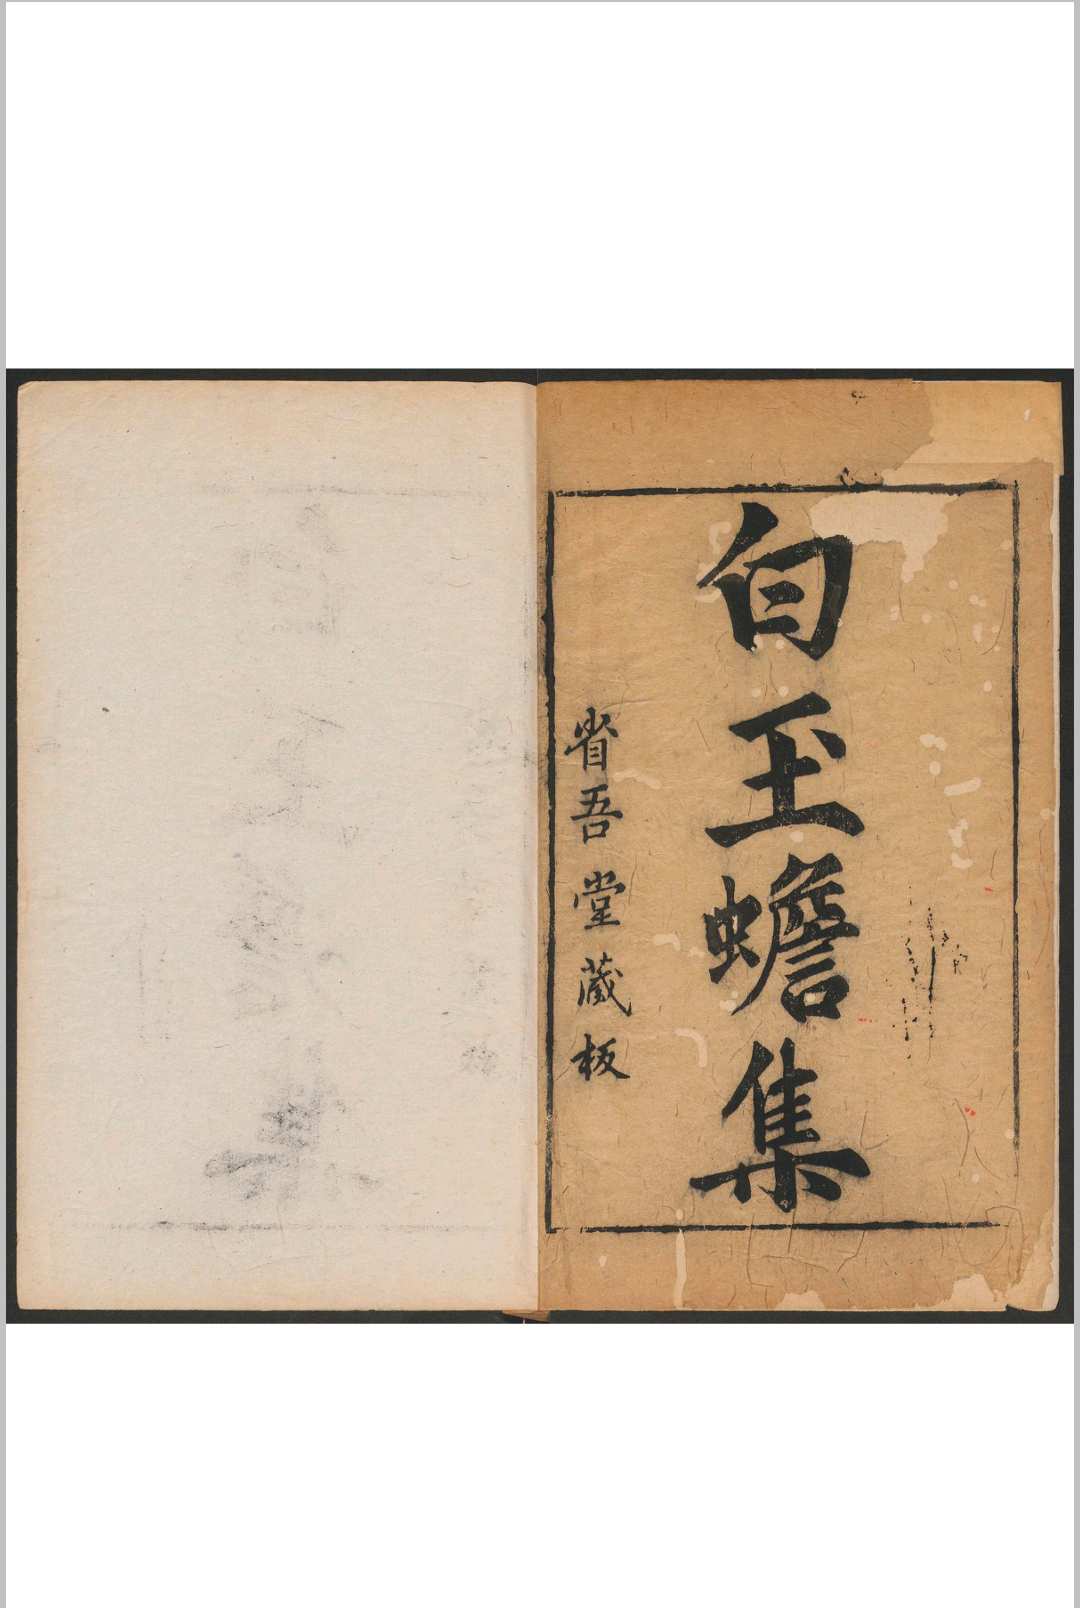 白玉蟾集
省吾堂藏板